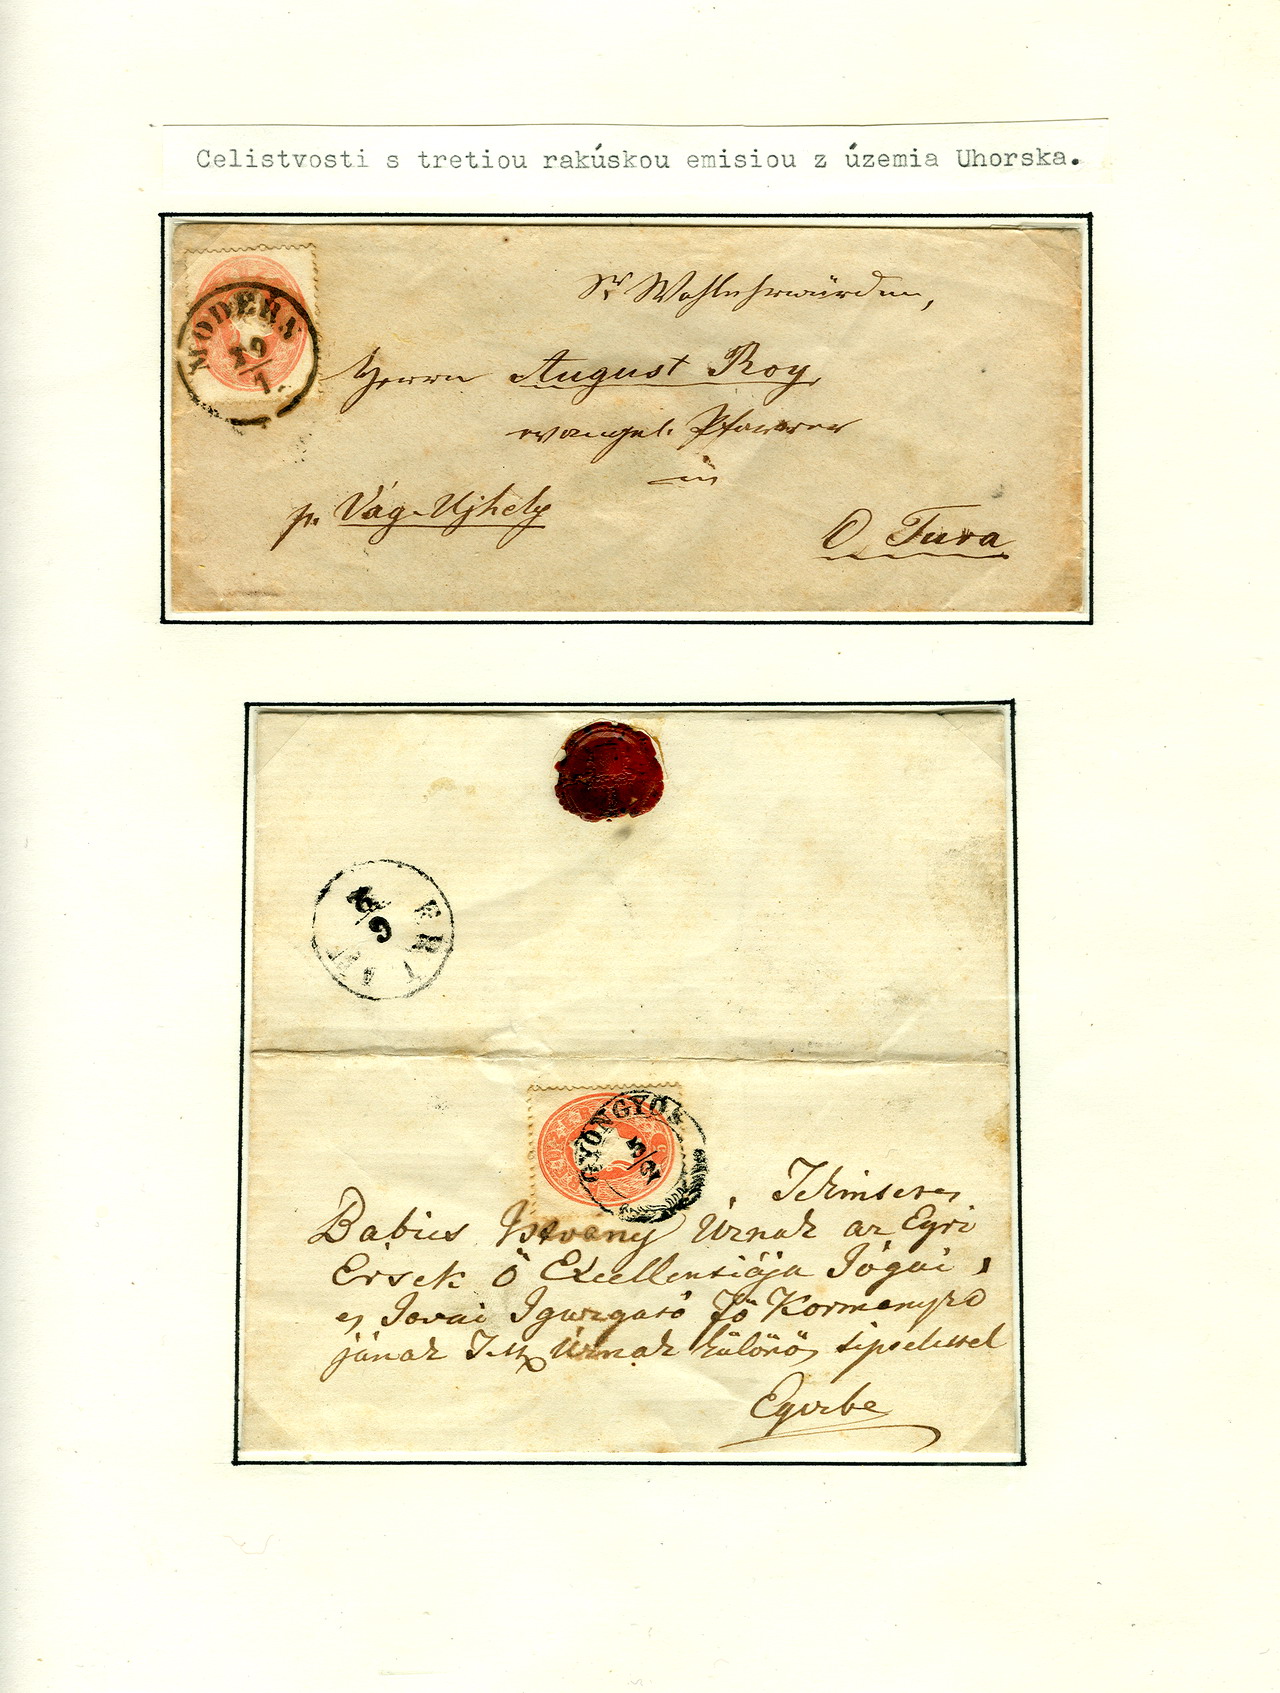 Celistvosti s tretiou rakúskou emisiou z územia Uhorska.
MODERN
19/7.
Sr Wohlehrwürden,
Herrn August Roy
evangel. Pfarrer
in
p. Vág-Ujhely
O Tura
ERLAU
GYÖNGYÖS
5/2
Babics Istvany Úrnak az Egri
Érsek Ő Excellentiája Jógai,
es Javai Igazgató Fő Kormanyzó
jának Urnak különös tisztelettel
Egerbe